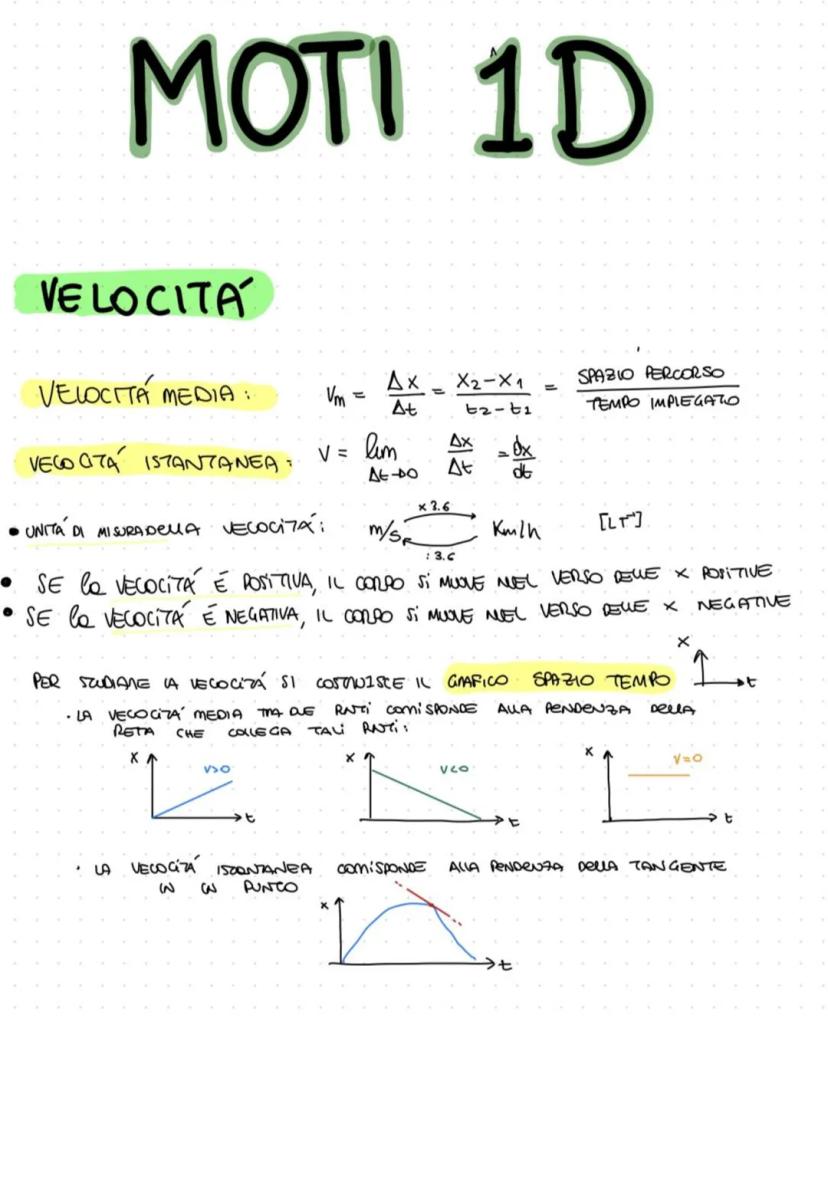 MOTI 1D
VELOCITÁ
VELOCITÁ MEDIA: Vm = Δx/Δt = x2-x1/t2-t1 = SPAZIO PERCORSO/TEMPO IMPIEGATO
VELOCITÁ ISTANTANEA: V = lim Δt→0 Δx/Δt = dx/dt
• UNITÁ DI MISURA DELLA VELOCITÁ: m/s x 3.6 : 3.6 Km/h [LT⁻¹]
• SE la VELOCITÁ É POSITIVA, IL CORPO Si MUOVE NEL VERSO DELLE x POSITIVE
• SE la VELOCITÁ É NEGATIVA, IL CORPO Si MUOVE NEL VERSO DELLE x NEGATIVE
PER STUDIARE LA VELOCITÁ SI COSTRUISCE IL GRAFICO SPAZIO TEMPO x t
• LA VELOCITÁ MEDIA TRA DUE PUNTI CORRISPONDE ALLA PENDENZA DELLA
RETTA CHE COLLEGA TALI PUNTI:
x V>0 t
x V<0 t
x V=0 t
• LA VELOCITÁ ISTANTANEA CORRISPONDE ALLA PENDENZA DELLA TANGENTE
IN UN PUNTO
x t